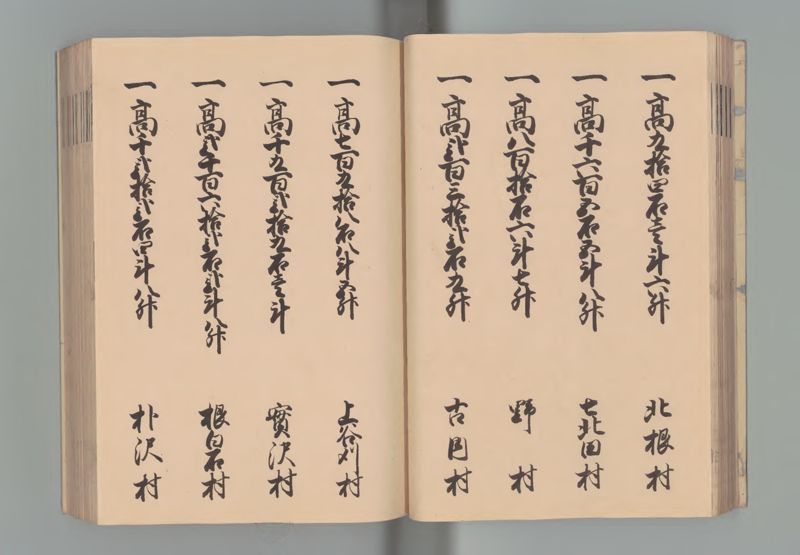 一高九拾四石壱斗六升 北根村
一高千六百五石五斗八升 七北田村
一高八百拾石六斗七升 野村
一高弐百三拾弐石九升 古内村
一高七百九拾八石八斗五升 上谷刈村
一高千九百弐拾九石壱斗 實沢村
一高弐千百六拾弐石弐斗八升 根白石村
一高千弐拾弐石四斗八升 朴沢村